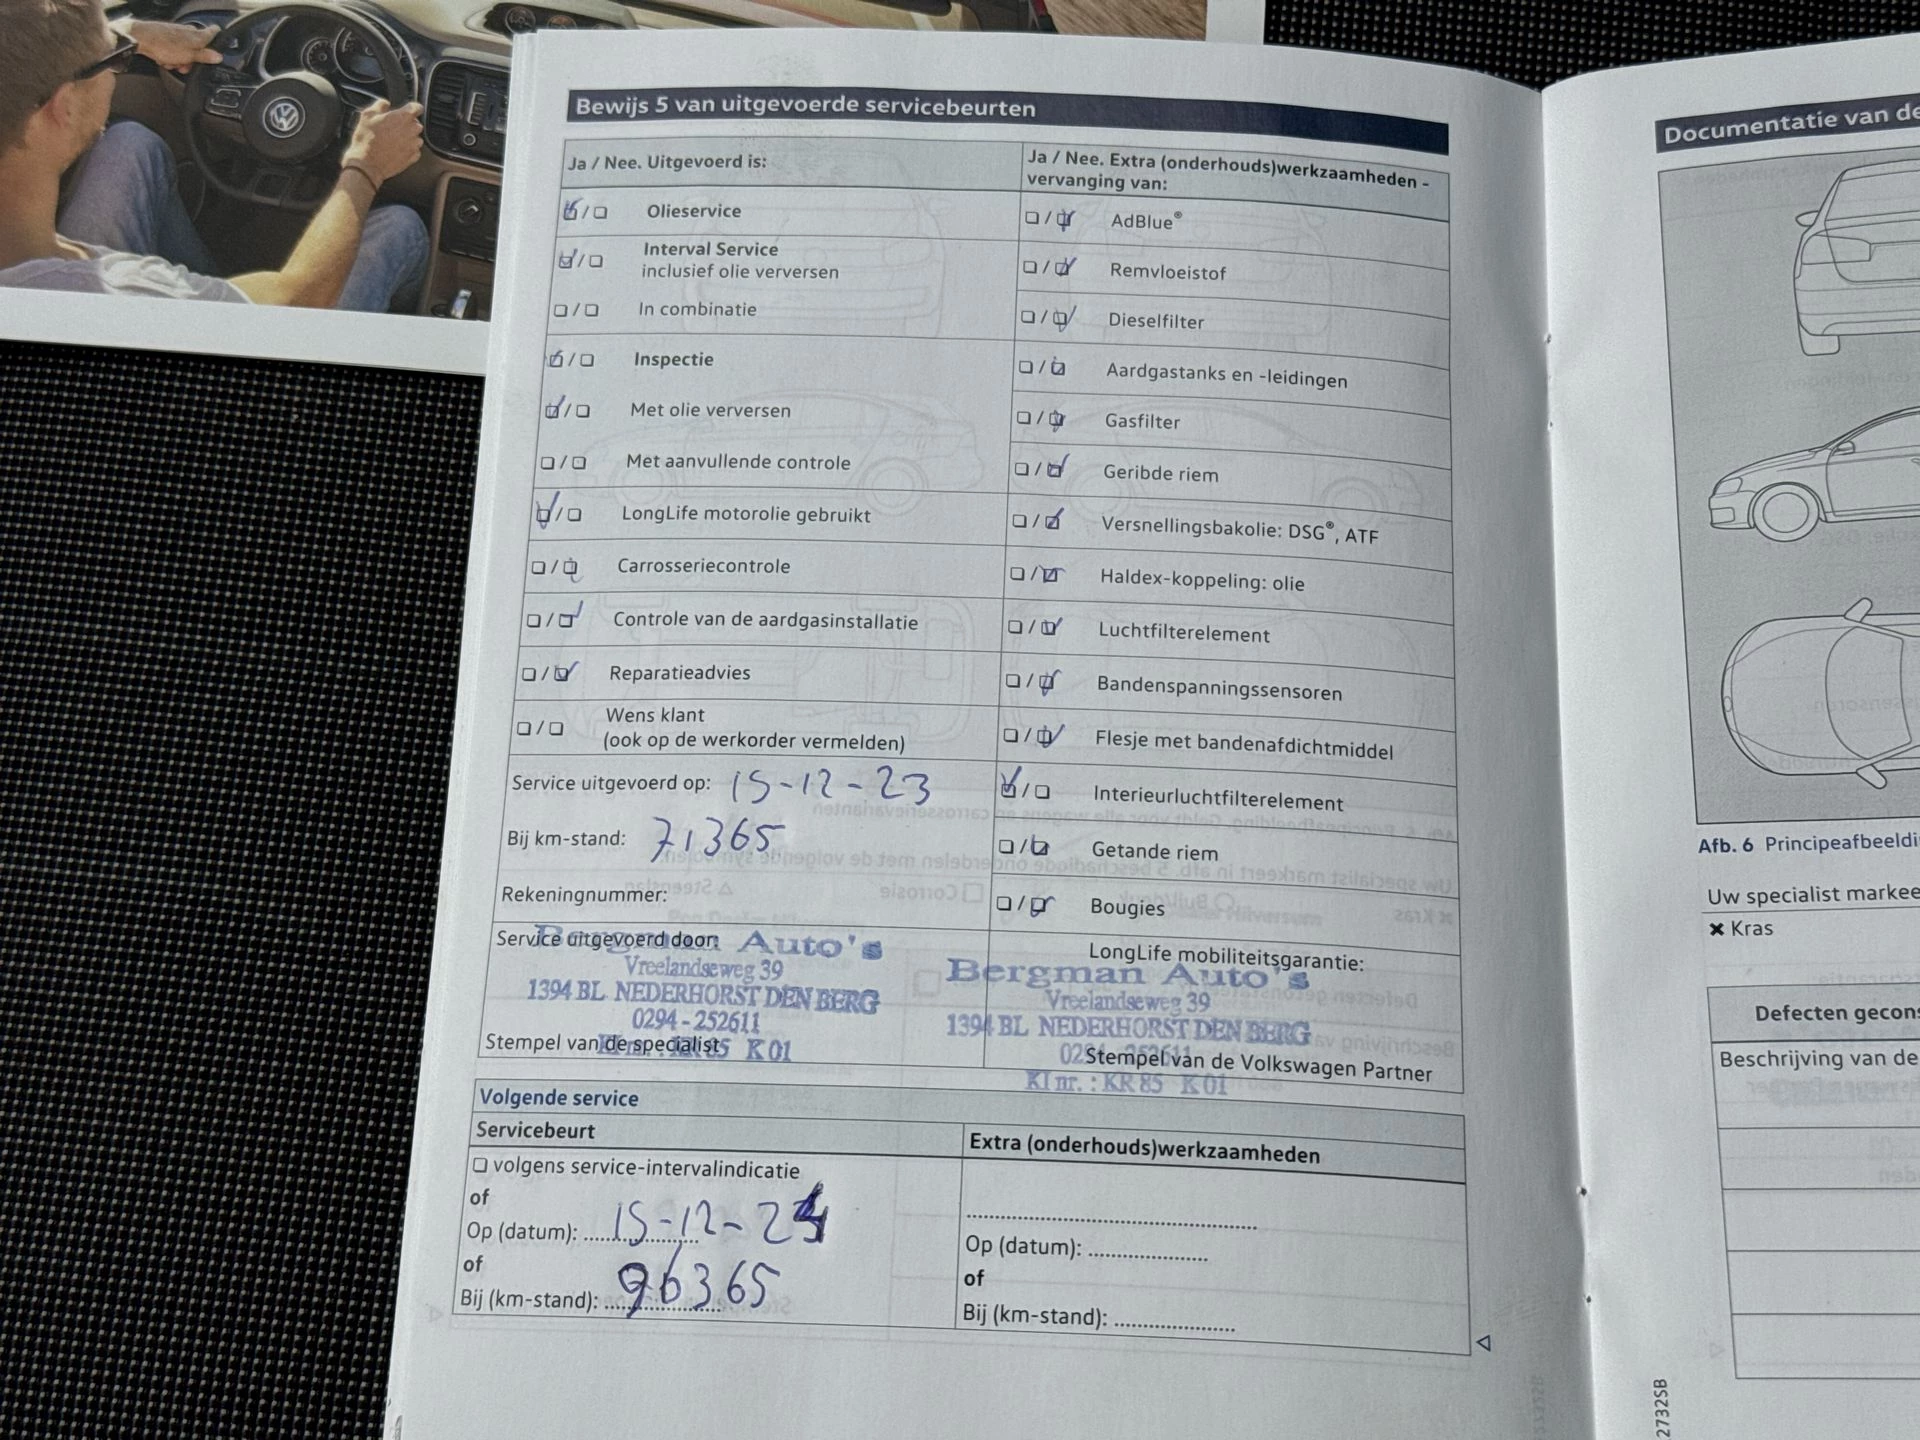 Bewijs 5 van uitgevoerde servicebeurten
Ja / Nee. Uitgevoerd is:
☑/☐ Olieservice
☑/☐ Interval Service
inclusief olie verversen
☐/☐ In combinatie
☑/☐ Inspectie
☑/☐ Met olie verversen
☐/☐ Met aanvullende controle
☑/☐ LongLife motorolie gebruikt
☐/☑ Carrosseriecontrole
☐/☑ Controle van de aardgasinstallatie
☐/☑ Reparatieadvies
☐/☐ Wens klant
(ook op de werkorder vermelden)
Service uitgevoerd op: 15-12-23
Bij km-stand: 71365
Rekeningnummer:
Service uitgevoerd door:
Bergman Auto's
Vreelandseweg 39
1394 BL NEDERHORST DEN BERG
0294-252611
KI nr. : KR 85 K01
Stempel van de specialist
Ja / Nee. Extra (onderhouds)werkzaamheden -
vervanging van:
☐/☑ AdBlue®
☐/☑ Remvloeistof
☐/☑ Dieselfilter
☐/☑ Aardgastanks en -leidingen
☐/☑ Gasfilter
☐/☑ Geribde riem
☐/☑ Versnellingsbakolie: DSG®, ATF
☐/☑ Haldex-koppeling: olie
☐/☑ Luchtfilterelement
☐/☑ Bandenspanningssensoren
☐/☑ Flesje met bandenafdichtmiddel
☑/☐ Interieurluchtfilterelement
☐/☑ Getande riem
☐/☑ Bougies
LongLife mobiliteitsgarantie:
Bergman Auto's
Vreelandseweg 39
1394 BL NEDERHORST DEN BERG
0294-252611
KI nr. : KR 85 K01
Stempel van de Volkswagen Partner
Volgende service
Servicebeurt
☐ volgens service-intervalindicatie
of
Op (datum): 15-12-24
of
Bij (km-stand): 96365
Extra (onderhouds)werkzaamheden
Op (datum):
of
Bij (km-stand):
Documentatie van de
Afb. 6 Principeafbeeldi
Uw specialist markee
✖ Kras
Defecten gecons
Beschrijving van de
2732SB